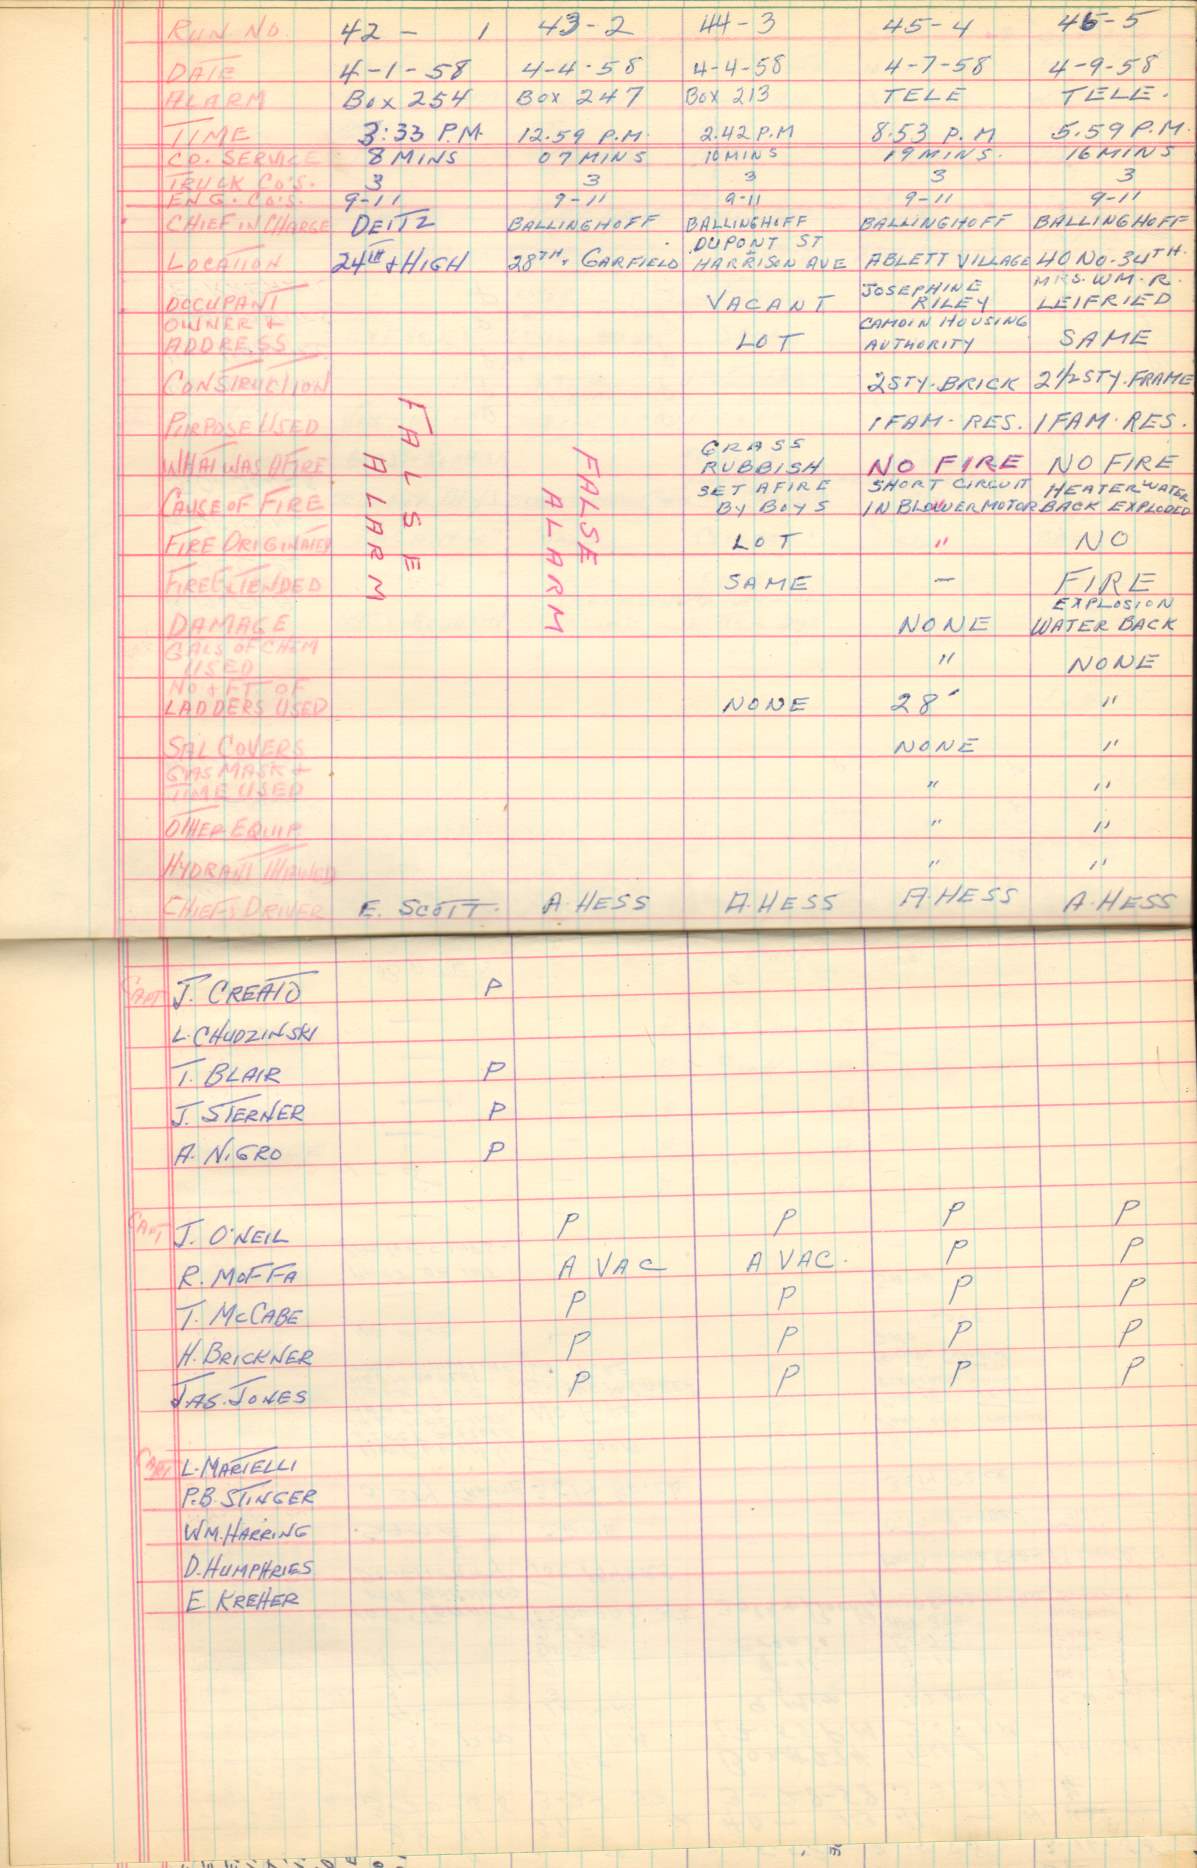 RUN NO. 42 - 1 43-2 44-3 45-4 46-5
DATE 4-1-58 4-4-58 4-4-58 4-7-58 4-9-58
ALARM BOX 254 BOX 247 BOX 213 TELE TELE.
TIME 3:33 P.M. 12.59 P.M. 2.42 P.M 8.53 P.M 5.59 P.M.
CO. SERVICE 8 MINS 07 MINS 10 MINS 19 MINS. 16 MINS
TRUCK CO'S. 3 3 3 3 3
ENG. CO'S. 9-11 9-11 9-11 9-11 9-11
CHIEF IN CHARGE DEITZ BALLINGHOFF BALLINGHOFF BALLINGHOFF BALLINGHOFF
DUPONT ST
LOCATION 24TH + HIGH 28TH + GARFIELD HARRISON AVE ABLETT VILLAGE 40 NO. 34TH.
JOSEPHINE MRS. WM. R.
OCCUPANT VACANT RILEY LEIFRIED
OWNER + CAMDEN HOUSING
ADDRESS LOT AUTHORITY SAME
CONSTRUCTION 2 STY. BRICK 2 1/2 STY. FRAME
PURPOSE USED 1 FAM. RES. 1 FAM. RES.
FALSE
ALARM
FALSE
ALARM
GRASS
WHAT WAS AFIRE RUBBISH NO FIRE NO FIRE
SET AFIRE SHORT CIRCUIT HEATER WATER
CAUSE OF FIRE BY BOYS IN BLOWER MOTOR BACK EXPLODED
FIRE ORIGINATED LOT " NO
FIRE EXTENDED SAME — FIRE
EXPLOSION
DAMAGE NONE WATER BACK
GALS OF CHEM
USED " NONE
NO & FT. OF
LADDERS USED NONE 28' "
SAL COVERS NONE "
GAS MASK +
TIME USED " "
OTHER EQUIP " "
HYDRANT THAWED " "
CHIEF'S DRIVER E. SCOTT. A. HESS A. HESS A. HESS A. HESS
CAPT J. CREATO P
L. CHUDZINSKI
T. BLAIR P
J. STERNER P
A. NIGRO P
CAPT J. O'NEIL P P P P
R. MOFFA A VAC A VAC. P P
T. McCABE P P P P
H. BRICKNER P P P P
JAS. JONES P P P P
CAPT L. MARTELLI
P.B. STINGER
WM. HARRING
D. HUMPHRIES
E KREHER